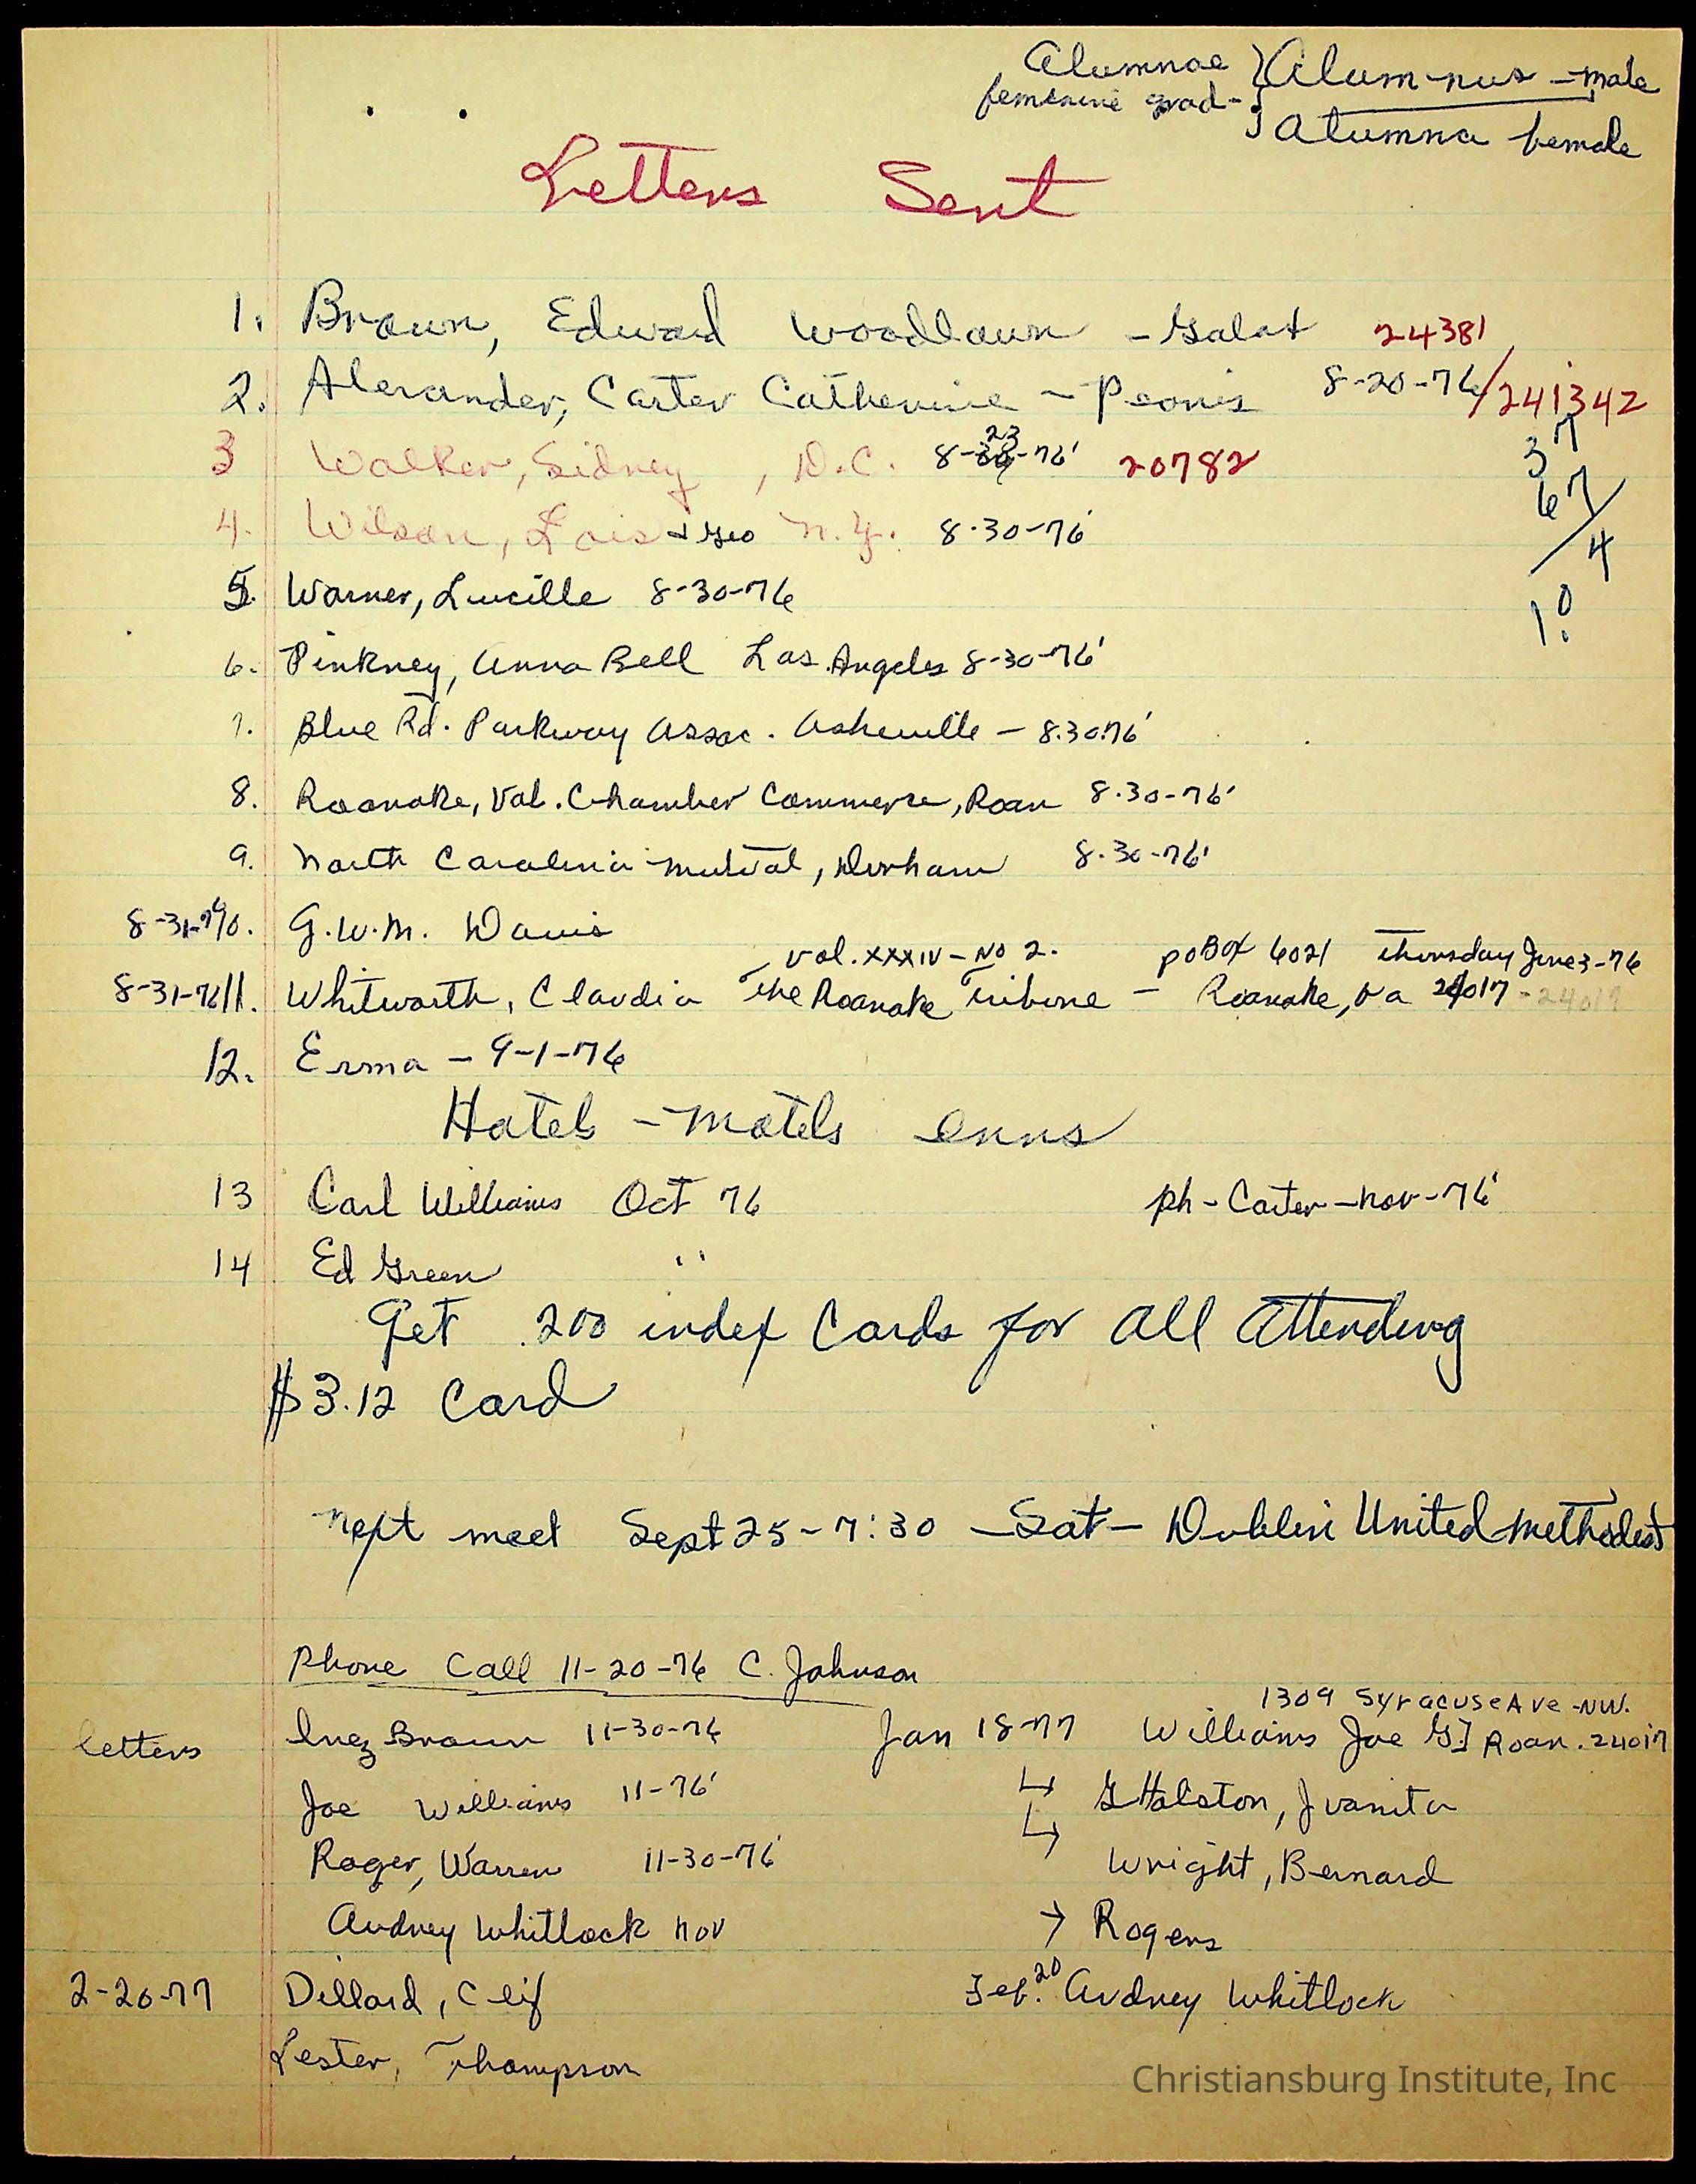 Alumnae } Alum-nus - male
feminine grad- } Alumna female
Letters Sent
1. Brown, Edward Woodlawn - Galax 24381
2. Alexander, Carter Catherine - Pearis 8-20-76/241342
3 Walker, Sidney, D.C. 8-23-76' 20782
37
67/
4
10
4. Wilson, Lois + Geo N.Y. 8-30-76'
5. Warner, Lucille 8-30-76
6. Pinkney, Anna Bell Los Angeles 8-30-76'
7. Blue Rd. Parkway Assoc. Asheville - 8.30.76'
8. Roanoke, Val. Chamber Commerce, Roan 8-30-76'
9. North Carolina Mutual, Durham 8-30-76'
8-31-76 10. G.W.M. Davis
Vol. XXXIV - No 2. PO Box 6021 Thursday June 3-76
8-31-76 11. Whitworth, Claudia The Roanoke Tribune - Roanoke, Va 24017 - 24017
12. Erma - 9-1-76
Hotels - Motels Inns
13 Carl Williams Oct 76 ph - Carter - Nov - 76'
14 Ed Green "
Get 200 index Cards for all Attending
$3.12 Card
Next meet Sept 25 - 7:30 - Sat - Dublin United Methodist
Phone Call 11-20-76 C. Johnson
1309 Syracuse Ave - NW.
letters Inez Brown 11-30-76 Jan 18-77 Williams Joe G.] Roan. 24017
Joe Williams 11-76' ↳ Halston, Juanita
Roger, Warren 11-30-76' ↳ Wright, Bernard
Audney Whitlock Nov → Rogers
2-20-77 Dillard, Clif Feb. 20 Audney Whitlock
Lester, Thompson
Christiansburg Institute, Inc